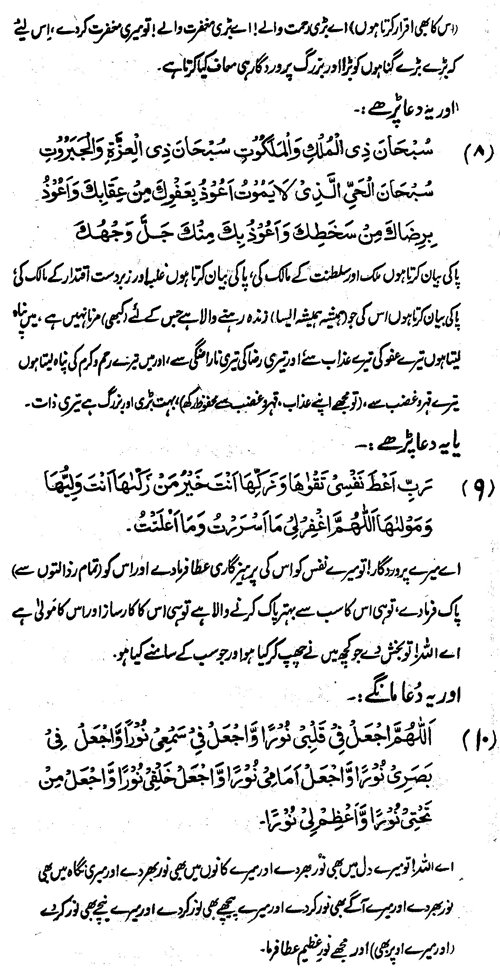 (اس کا بھی اقرار کرتا ہوں) اے بڑی رحمت والے! اے بڑی مغفرت والے! تو میری مغفرت کر دے، اس لیئے
کہ بڑے بڑے گناہوں کو بڑا اور بزرگ پروردگار ہی معاف کیا کرتا ہے۔
اور یہ دعا پڑھے :۔
(۸) سُبْحَانَ ذِی الْمُلْكِ وَالْمَلَكُوْتِ سُبْحَانَ ذِی الْعِزَّةِ وَالْجَبَرُوْتِ
سُبْحَانَ الْحَيِّ الَّذِیْ لَا يَمُوْتُ اَعُوْذُ بِعَفْوِكَ مِنْ عِقَابِكَ وَاَعُوْذُ
بِرِضَاكَ مِنْ سَخَطِكَ وَاَعُوْذُ بِكَ مِنْكَ جَلَّ وَجْهُكَ
پاکی بیان کرتا ہوں ملک اور سلطنت کے مالک کی، پاکی بیان کرتا ہوں غلبہ اور زبردست اقتدار کے مالک کی
پاکی بیان کرتا ہوں اس کی جو (ہمیشہ ہمیشہ ایسا) زندہ رہنے والا ہے جس کے لئے (کبھی) مرنا نہیں ہے، میں پناہ
لیتا ہوں تیرے عفو کی تیرے عذاب سے اور تیری رضا کی تیری ناراضگی سے، اور میں تیرے رحم و کرم کی پناہ لیتا ہوں
تیرے قہر و غضب سے، (تو مجھے اپنے عذاب، قہر و غضب سے محفوظ رکھ)، بہت بڑی اور بزرگ ہے تیری ذات۔
یا یہ دعا پڑھے :۔
(۹) رَبِّ اَعْطِ نَفْسِیْ تَقْوٰهَا وَزَكِّهَا اَنْتَ خَيْرُ مَنْ زَكّٰهَا اَنْتَ وَلِيُّهَا
وَمَوْلٰهَا اَللّٰهُمَّ اغْفِرْ لِیْ مَا اَسْرَرْتُ وَمَا اَعْلَنْتُ۔
اے میرے پروردگار! تو میرے نفس کو اس کی پرہیزگاری عطا فرما دے اور اس کو (تمام رذالتوں سے)
پاک فرما دے، تو ہی اس کا سب سے بہتر پاک کرنے والا ہے تو ہی اس کا کارساز اور اس کا مولیٰ ہے
اے اللہ! تو بخش دے جو کچھ میں نے چھپ کر کیا ہو اور جو سب کے سامنے کیا ہو۔
اور یہ دُعا مانگے :۔
(۱۰) اَللّٰهُمَّ اجْعَلْ فِیْ قَلْبِیْ نُوْرًا وَّاجْعَلْ فِیْ سَمْعِیْ نُوْرًا وَّاجْعَلْ فِیْ
بَصَرِیْ نُوْرًا وَّاجْعَلْ اَمَامِیْ نُوْرًا وَّاجْعَلْ خَلْفِیْ نُوْرًا وَّاجْعَلْ مِنْ
تَحْتِیْ نُوْرًا وَّاَعْظِمْ لِیْ نُوْرًا۔
اے اللہ! تو میرے دل میں بھی نور بھر دے اور میرے کانوں میں بھی نور بھر دے اور میری نگاہ میں بھی
نور بھر دے اور میرے آگے بھی نور کر دے اور میرے پیچھے بھی نور کر دے اور میرے نیچے بھی نور کر دے
(اور میرے اوپر بھی) اور مجھے نور عظیم عطا فرما۔